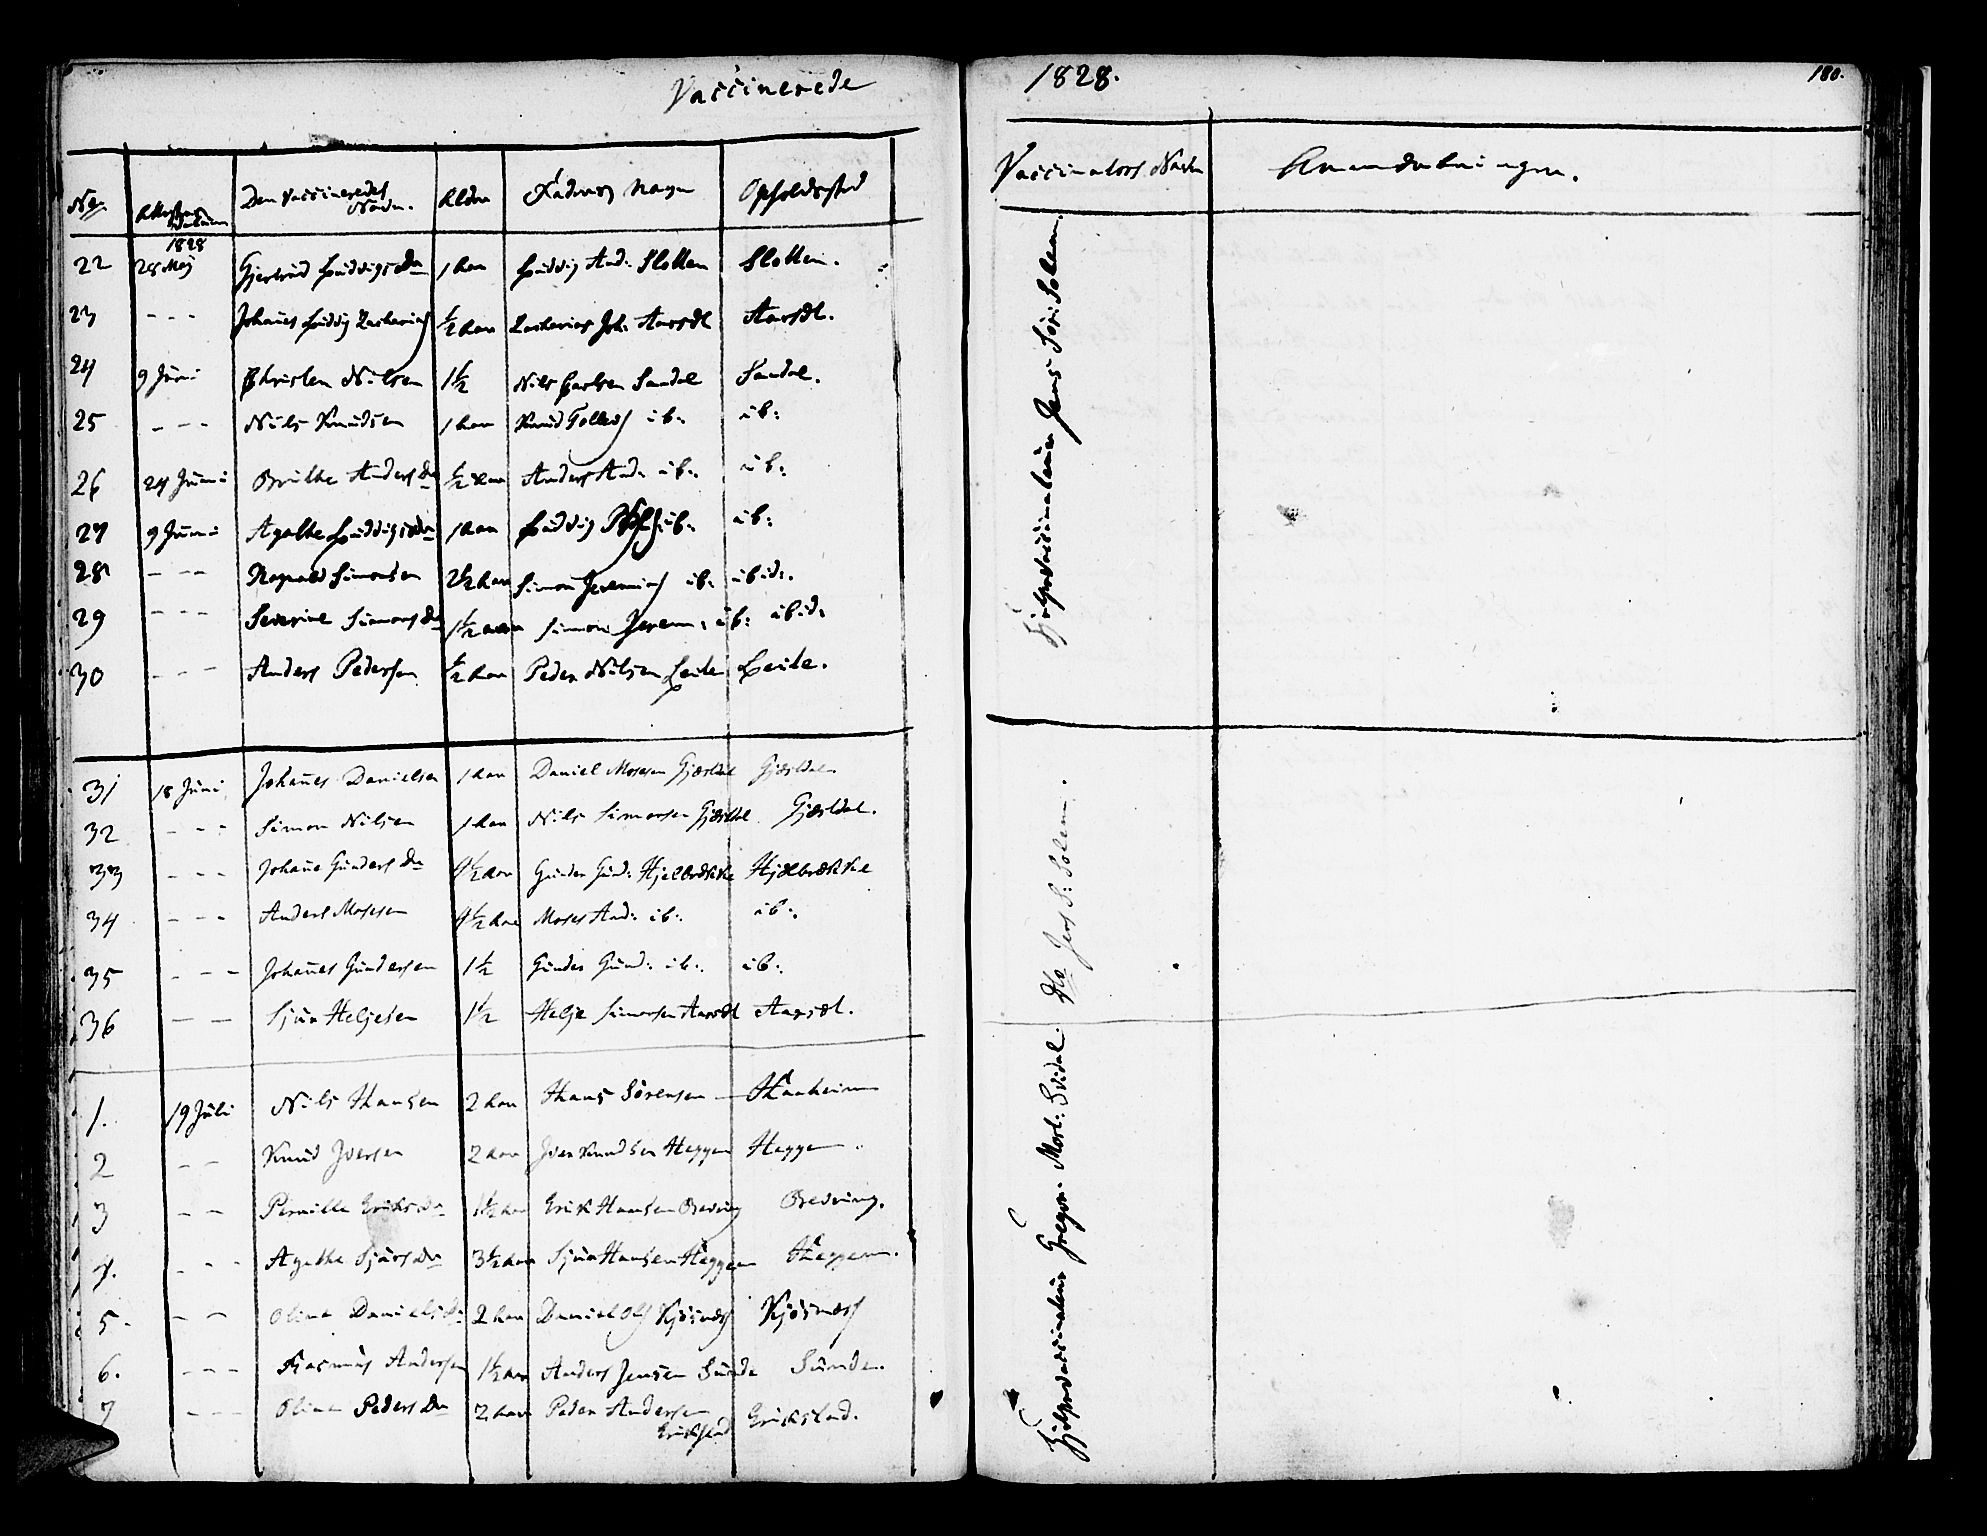 Vaccinerede
1828.
180.
No. Attestens Datum Den Vaccineredes Navn. Alder Fadrens Navn Opholdssted Vaccinateurs Navn Anmærkninger.
1828
22 28 Maj Gjertrud Ludvigs Dr 1 Aar Ludvig And: Slotten Slotten.
23 - - - Johannes Ludvig Zacharias ½ Aar Zacharias Joh: Aarsdl Aarsdl.
24 9 Juni Christen Nilsen 1½ Nils Carlsen Sandal Sandal.
25 - - - Nils Knudsen 1 Aar Knud Tollevs ib: ib:
26 24 Juni Brithe Anders Dr ½ Aar Anders And: ib: ib:
27 9 Juni Agathe Ludvigs Dr 1 Aar Ludvig ib: ib:
28 - - - Ragnald Simonsen 2½ Aar Simon Jeremias ib: ibid:.
29 - - - Severine Simons Dr 1½ Aar Simon Jerem: ib: ibid:
30 - - - Anders Pedersen ½ Aar Peder Nilsen Leite Leite.
Hjelpevaccinateur Jens Sør: Solem.
31 18 Juni Johannes Danielsen 1 Aar Daniel Mosesen Gjæsdal Gjæsdal.
32 - - - Simon Nilsen 1 Aar Nils Simonsen Gjæsdal Gjæsdal.
33 - - - Johanne Gunders Dr ½ Aar Gunder Gund: Hjelbrekke Hjelbrekke
34 - - - Anders Mosesen ½ Aar Moses And: ib: ib:.
35 - - - Johannes Gundersen 1½ Gunder Gund: ib: ib:.
36 - - Sjur Heljesen 1½ Helje Simonsen Aarsdl Aarsdl.
dto Jens S: Solem.
1. 19 Juli Nils Hansen 2 Aar Hans Sørensen - Aanheim
2 - - Knud Iversen 2 Aar Iver Knudsen Heggen Heggen
3 - - Pernille Eriks Dr 1½ Aar Erik Hansen Bredving Bredving.
4. - - - Agathe Sjurs Dr 3½ Aar Sjur Hansen Heggen Heggen.
5. - - Oline Daniels Dr 2 Aar Daniel Ols Kjøsnæs Kjøsnæs
6. - - - Rasmus Andersen 1½ Aar Anders Jensen Sunde Sunde.
7 - - - Oline Peders Dr 2 Aar Peder Andersen Erikstad Erikstad.
Hjelpevaccinateur Gregor. Mort: Svidal.